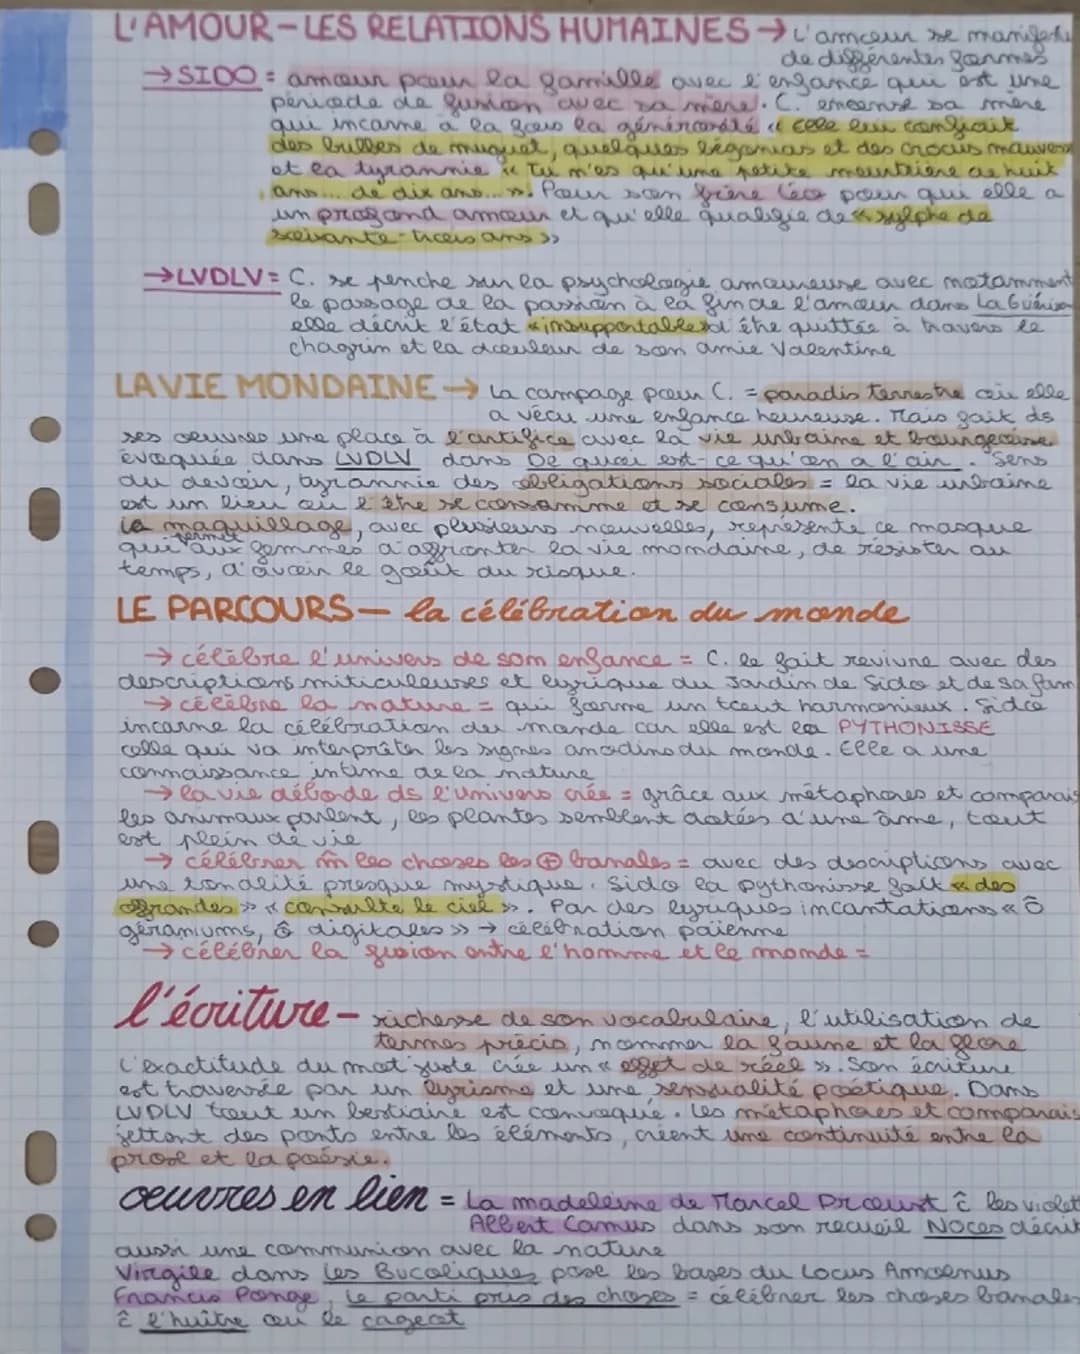 L'AMOUR - LES RELATIONS HUMAINES → L'amour se manifeste
de différentes formes
→ SIDO = amour pour la famille avec l'enfance qui est une
période de fusion avec sa mère. C. encense sa mère
qui incarne à la fois la générosité « Elle lui confiait
des bulbes de muguet, quelques bégonias et des crocus mauves »
et la tyrannie « Tu n'es qu'une petite meurtrière de huit
ans... de dix ans... ». Pour son frère Léo pour qui elle a
un profond amour et qu'elle qualifie de « sylphe de
soixante-trois ans »
→ LVDLV = C. se penche sur la psychologie amoureuse avec notamment
le passage de la passion à la fin de l'amour dans La Guérison
elle décrit l'état « insupportable » d'être quittée à travers le
chagrin et la douleur de son amie Valentine
LA VIE MONDAINE → La campage pour C. = paradis terrestre où elle
a vécu une enfance heureuse. Mais fait ds
ses œuvres une place à l'artifice avec la vie urbaine et bourgeoise
évoquée dans LVDLV dans De quoi est-ce qu'on a l'air. Sens
du devoir, tyrannie des obligations sociales = la vie urbaine
est un lieu où l'être se consomme et se consume.
Le maquillage, avec plusieurs nouvelles, représente ce masque
qui permet aux femmes d'affronter la vie mondaine, de résister au
temps, d'avoir le goût du risque.
LE PARCOURS - la célébration du monde
→ célèbre l'univers de son enfance = C. le fait revivre avec des
descriptions miticuleuses et lyrique du Jardin de Sido et de sa fam
→ célèbre la nature = qui forme un tout harmonieux. Sido
incarne la célébration du monde car elle est la PYTHONISSE
celle qui va interpréter les signes anodins du monde. Elle a une
connaissance intime de la nature
→ la vie déborde ds l'univers crée = grâce aux métaphores et comparais
les animaux parlent, les plantes semblent dotées d'une âme, tout
est plein de vie
→ célébrer m̂ les choses les ⊕ banales = avec des descriptions avec
une tonalité presque mystique. Sido la pythonisse fait « des
offrandes » « consulte le ciel ». Par des lyriques incantations « Ô
géraniums, ô digitales » → célébration païenne
→ célébrer la fusion entre l'homme et le monde =
l'écriture - richesse de son vocabulaire, l'utilisation de
termes précis, nommer la faune et la flore
L'exactitude du mot juste crée un « effet de réel ». Son écriture
est traversée par un lyrisme et une sensualité poétique. Dans
LVDLV tout un bestiaire est convoqué. Les métaphores et comparais
jettant des ponts entre les éléments, créent une continuité entre la
prose et la poésie.
œuvres en lien = La madeleine de Marcel Proust ĉ les violet
Albert Camus dans son recueil Noces décrit
aussi une communion avec la nature
Virgile dans Les Bucoliques pose les bases du Locus Amoenus
Francis Ponge, Le parti pris des choses = célébrer les choses banales
ĉ l'huître ou le cageot